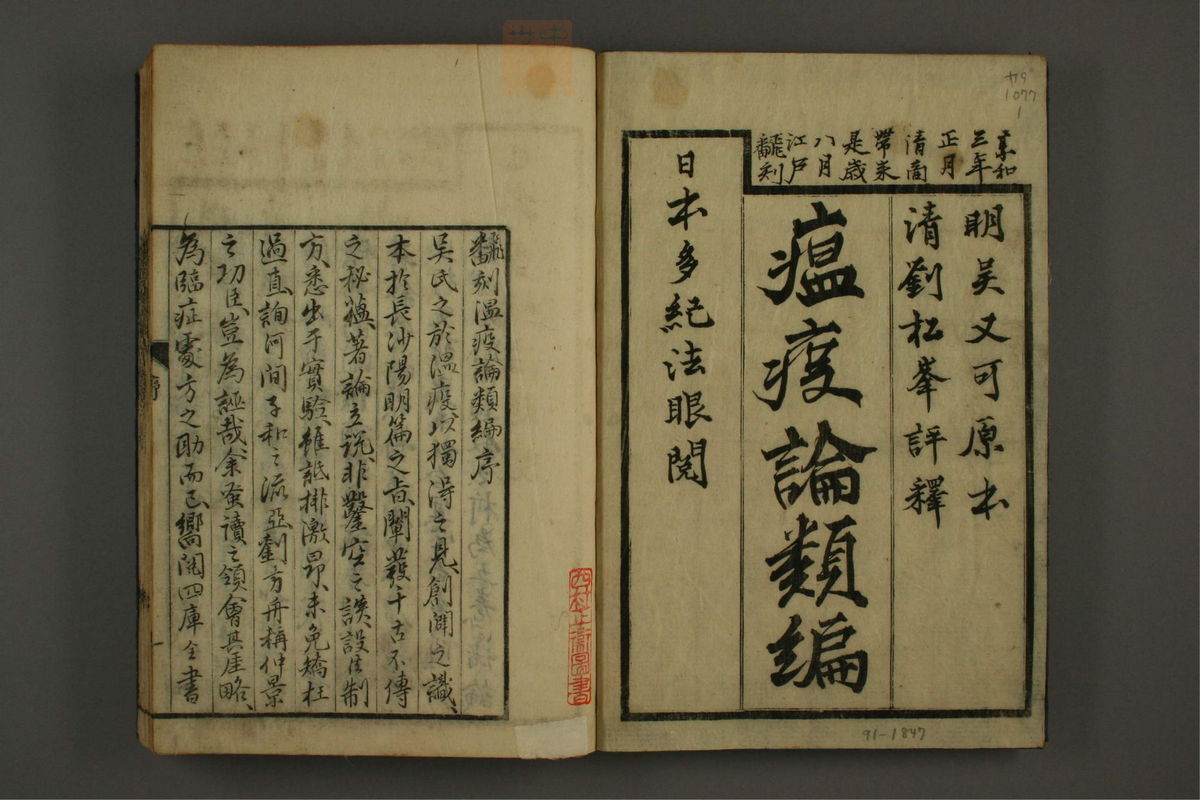 49
1077
1
享和
三年
正月
清商
帶来
是歳
八月
江戸
翻刻
明吳又可原本
清劉松峯評釋
瘟疫論類編
日本多紀法眼閱
91-1847
翻刻温疫論類編序
吳氏之於温疫以獨得之見創闢之識、
本於長沙陽明篇之旨闡發千古不傳
之秘蘊著論立說非鑿空之談設法制
方悉出于實驗雖詆排激昂未免矯枉
過直詢河間子和之流亞劉方舟稱仲景
之功臣豈為誣哉余蚤讀之領會其崖略、
為臨症處方之助而已嚮閱四庫全書
序
一